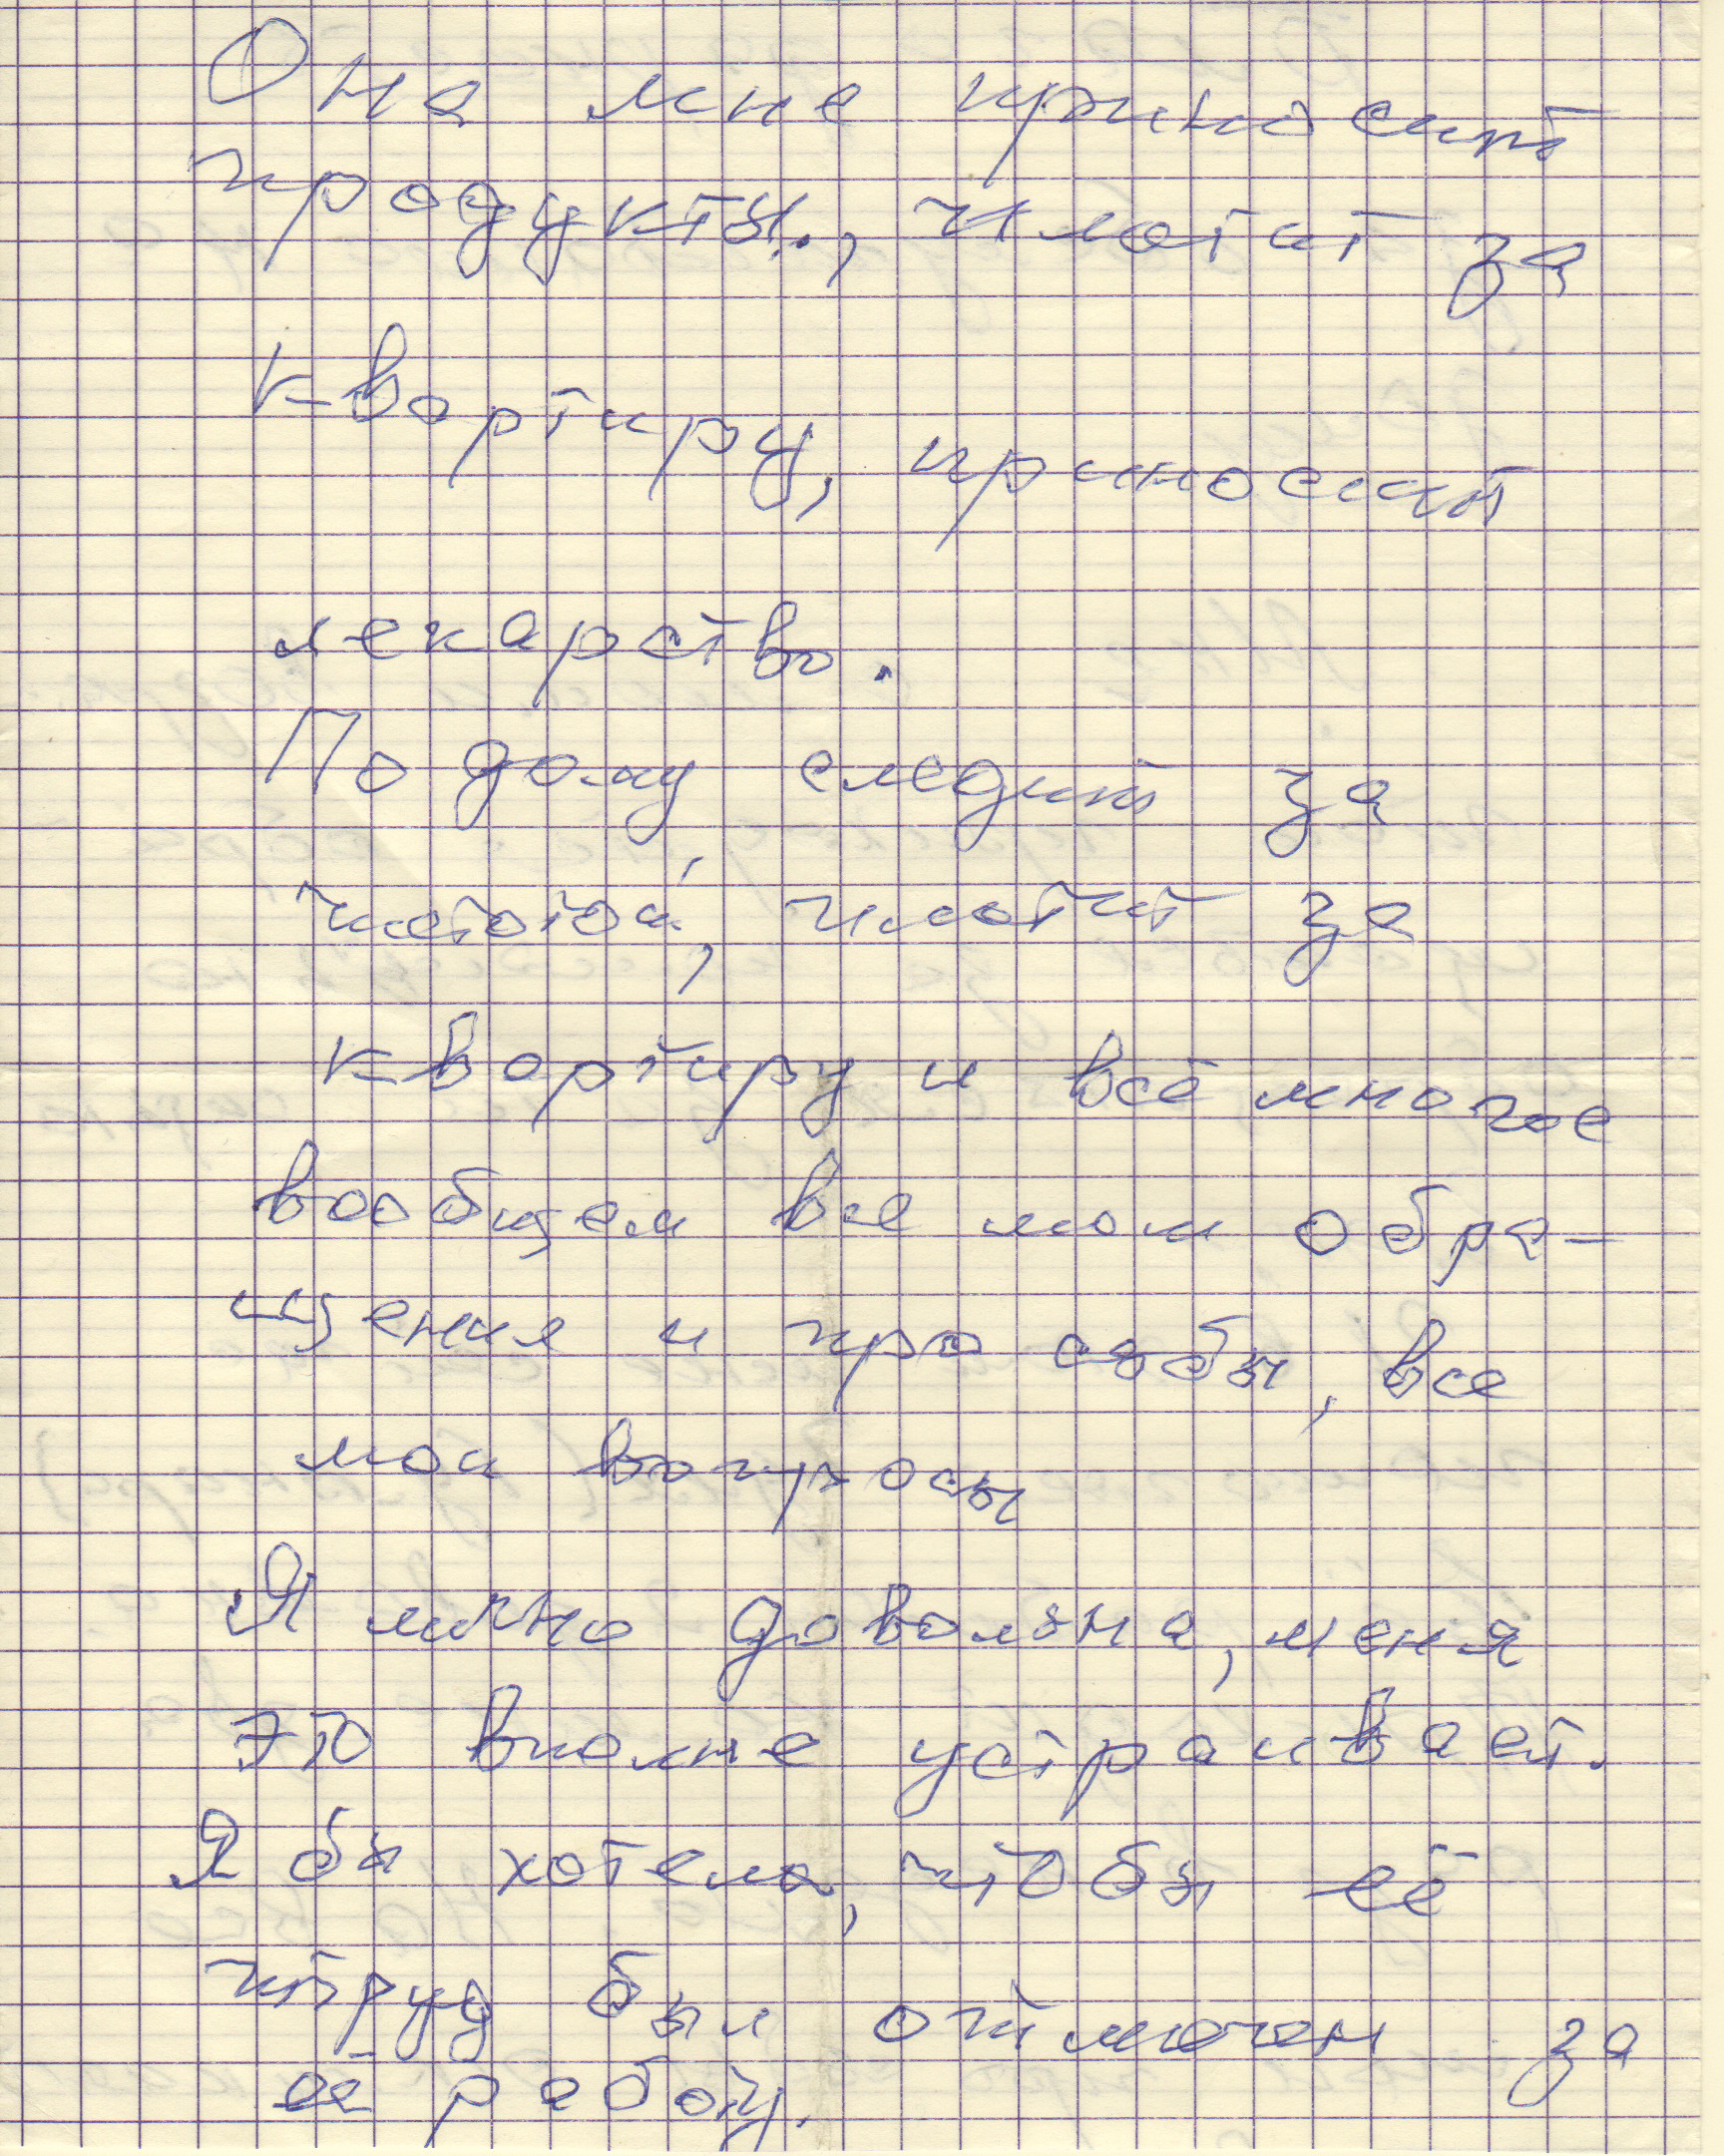 Она мне приносит
продукты., платит за
квортиру, приносит
лекарство.
По дому следит за
чистотой, платит за
квортиру и всё многое
вообщем все мои обра-
щения и прозьбы, все
мои вопросы
Я лично довольна, меня
это вполне устраивает.
Я бы хотела, чтобы её
труд был отмечен за
её работу.